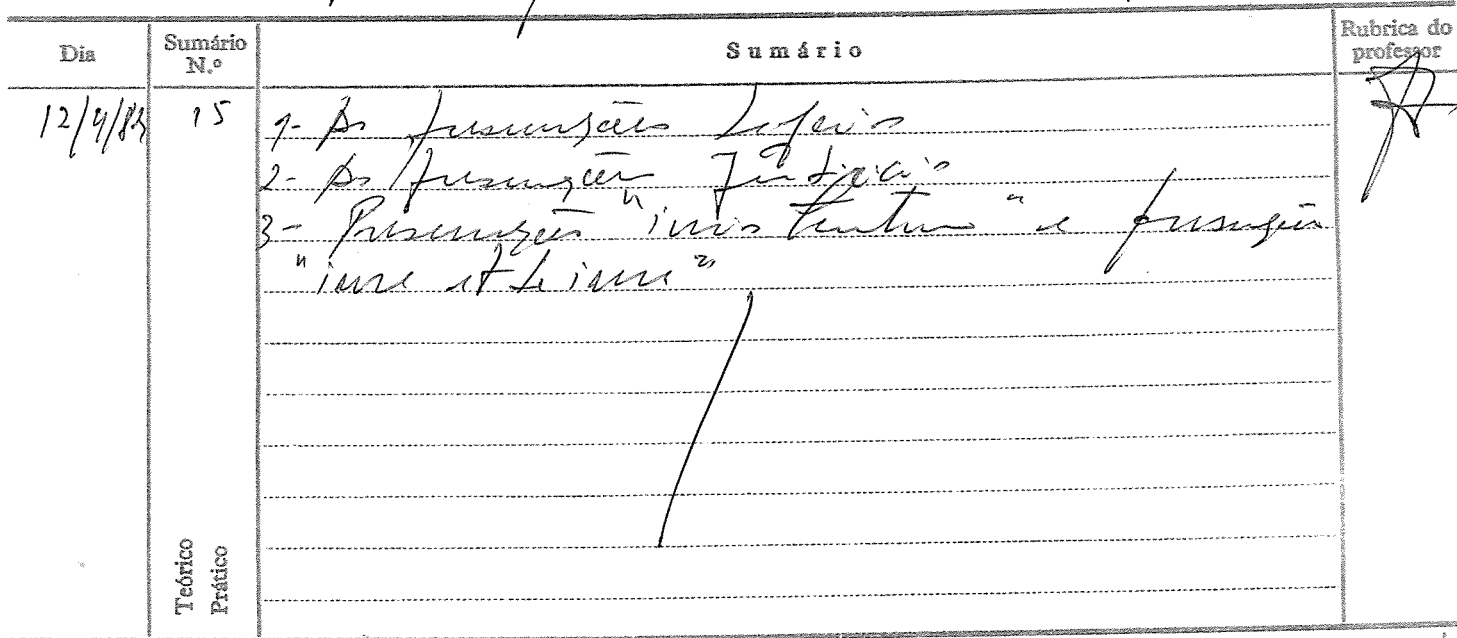 Dia
Sumário N.º
Sumário
Rubrica do professor
15
1- As presunções Legais
2- As presunções Judiciais
3- Presunções "iuris tantum" e presunções
"iure et de iure"
Teórico
Prático